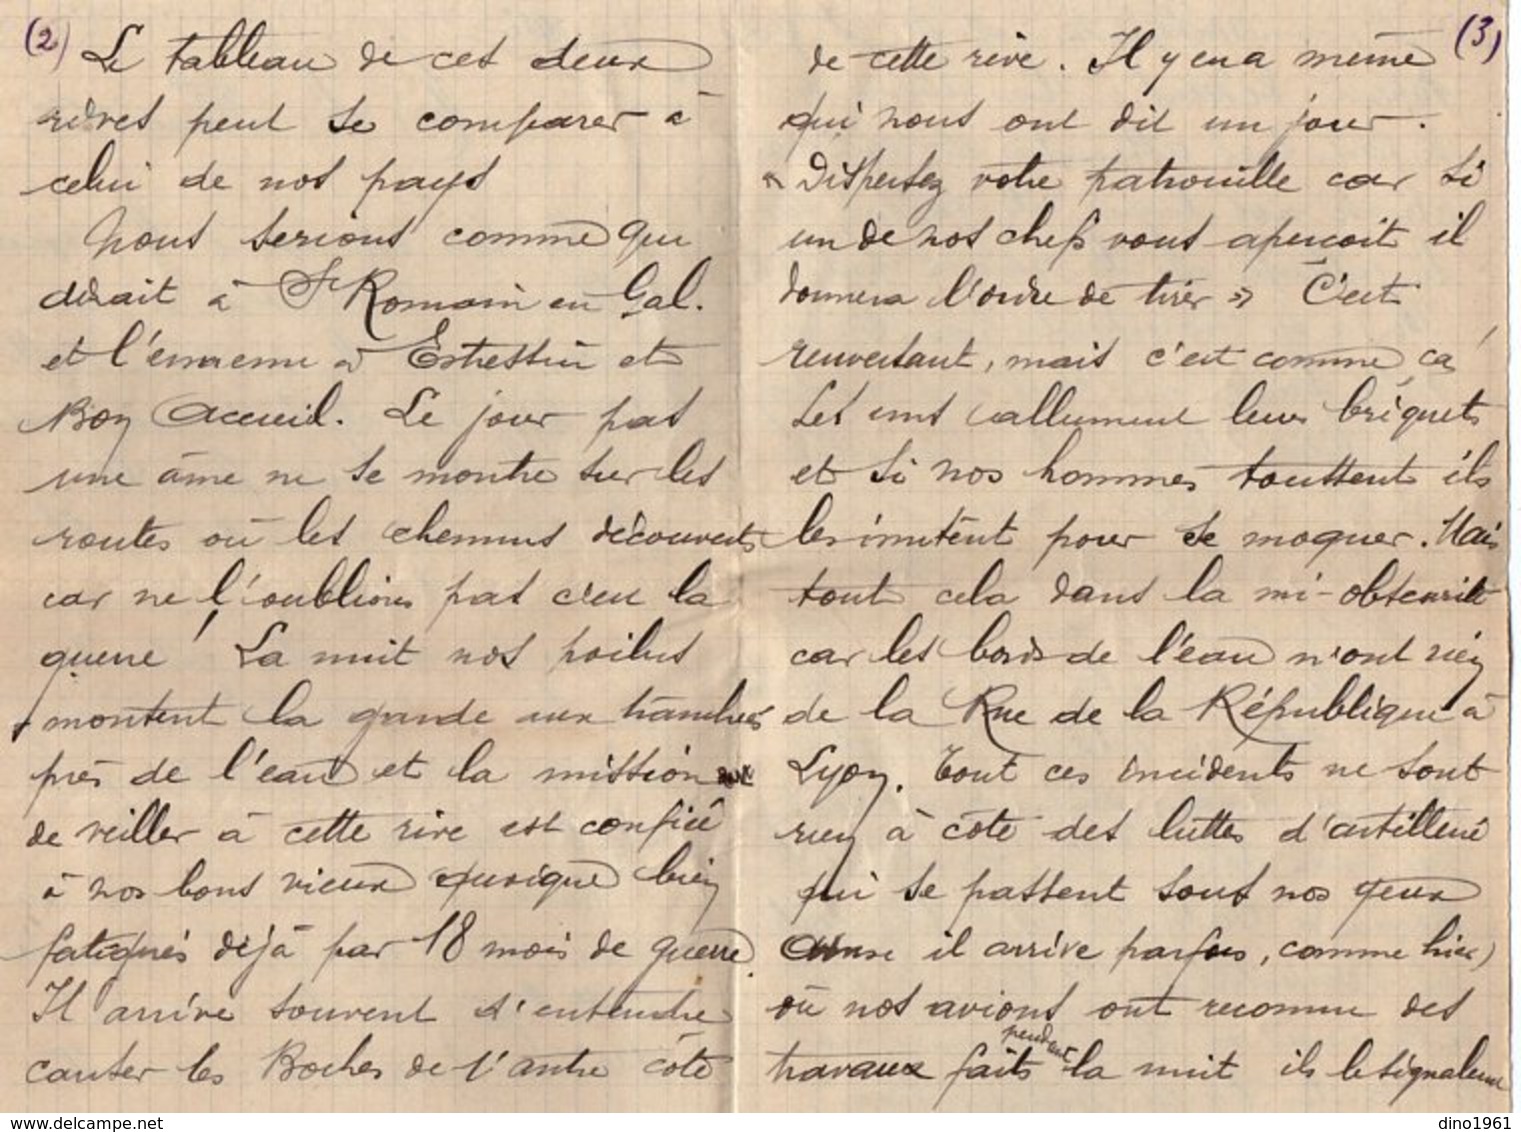 (2) Le tableau de ces deux
rives peut se comparer à
celui de nos pays
Nous serions comme qui
dirait à St Romain en Gal.
et l'ennemi à Estressin et
Bon Accueil. Le jour pas
une âme ne se montre sur les
routes où les chemins découverts
car ne l'oublions pas c'est la
guerre ! La nuit nos poilus
montent la garde aux tranchées
près de l'eau et la mission
de veiller à cette rive est confiée
à nos bons vieux quoique bien
fatigués déjà par 18 mois de guerre.
Il arrive souvent d'entendre
causer les Boches de l'autre côté
(3)
de cette rive. Il y en a même
qui nous ont dit un jour.
« Dispersez votre patrouille car si
un de nos chefs vous aperçoit il
donnera l'ordre de tirer » C'est
renversant, mais c'est comme ça
Les uns allument leurs briquets
et si nos hommes toussent ils
les imitent pour se moquer. Mais
tout cela dans la mi-obscurité
car les bords de l'eau n'ont rien
de la Rue de la République à
Lyon. Tout ces incidents ne sont
rien à côté des luttes d'artillerie
qui se passent sous nos yeux
il arrive parfois, comme hier)
où nos avions ont reconnu des
travaux faits pendant la nuit ils le signalent
delcampe.net
dino1961